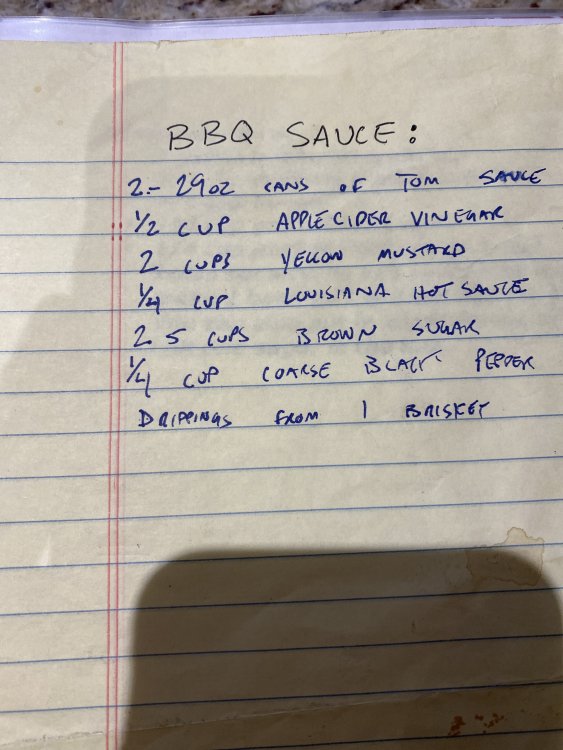 BBQ SAUCE:
2- 29oz CANS OF TOM SAUCE
1/2 CUP APPLE CIDER VINEGAR
2 CUPS YELLOW MUSTARD
1/4 CUP LOUISIANA HOT SAUCE
2.5 CUPS BROWN SUGAR
1/4 CUP COARSE BLACK PEPPER
DRIPPINGS FROM 1 BRISKET